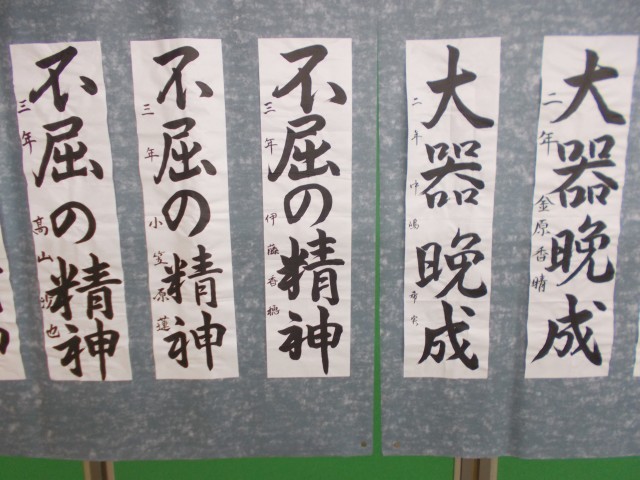 不屈の精神
三年 高山 也
不屈の精神
三年 小笠原蓮
不屈の精神
三年 伊藤香
大器晩成
二年 中嶋
大器晩成
二年 金原香晴